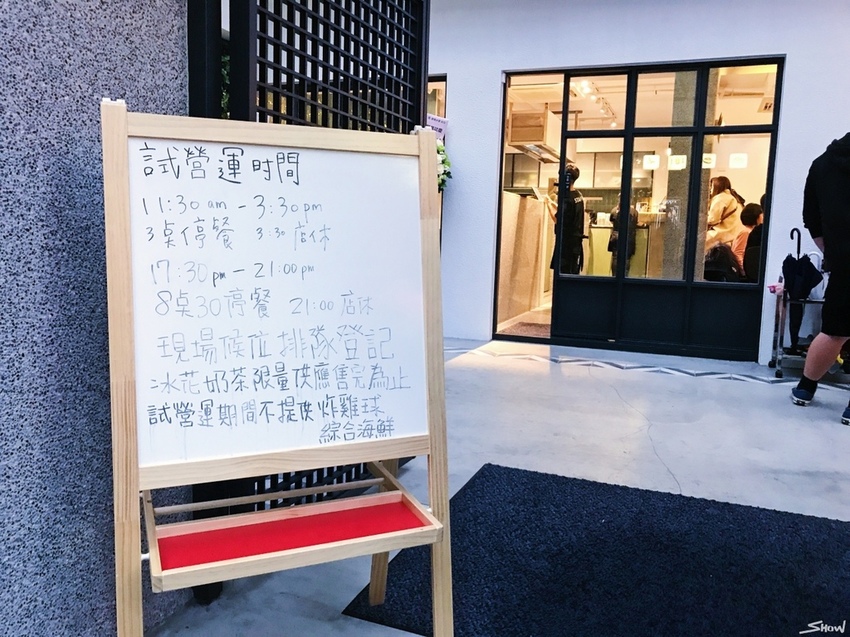 試營運時間
11:30 am - 3:30 pm
3桌停餐 3:30 店休
17:30 pm - 21:00 pm
8桌30停餐 21:00 店休
現場候位 排隊登記
冰花奶茶限量供應售完為止
試營運期間不提供炸雞球
綜合海鮮
SHOW